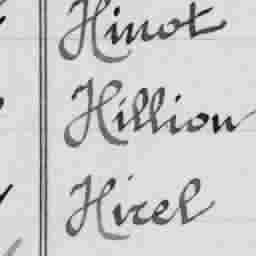 Hinot
Hillion
Hirel